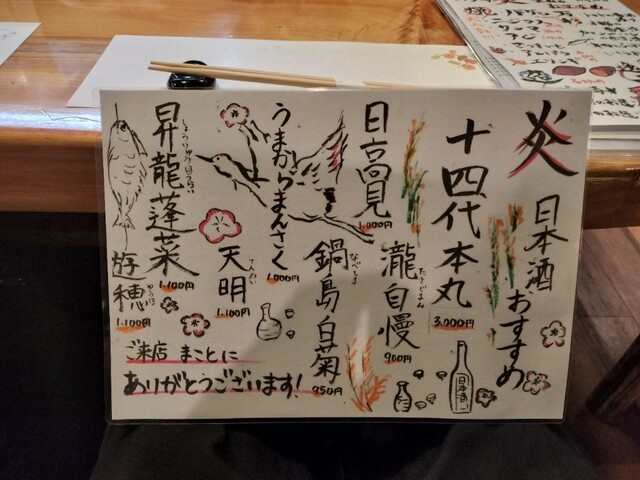 炎
日本酒おすすめ
十四代本丸
3,000円
日高見
1,000円
瀧自慢
たきじまん
900円
うまからまんさく
1,000円
鍋島
なべしま
白菊
950円
天明
てんめい
1,100円
昇龍蓬莱
しょうりゅうほうらい
1,100円
遊穂
ゆうほ
1,100円
ご来店 まことに
ありがとうございます!